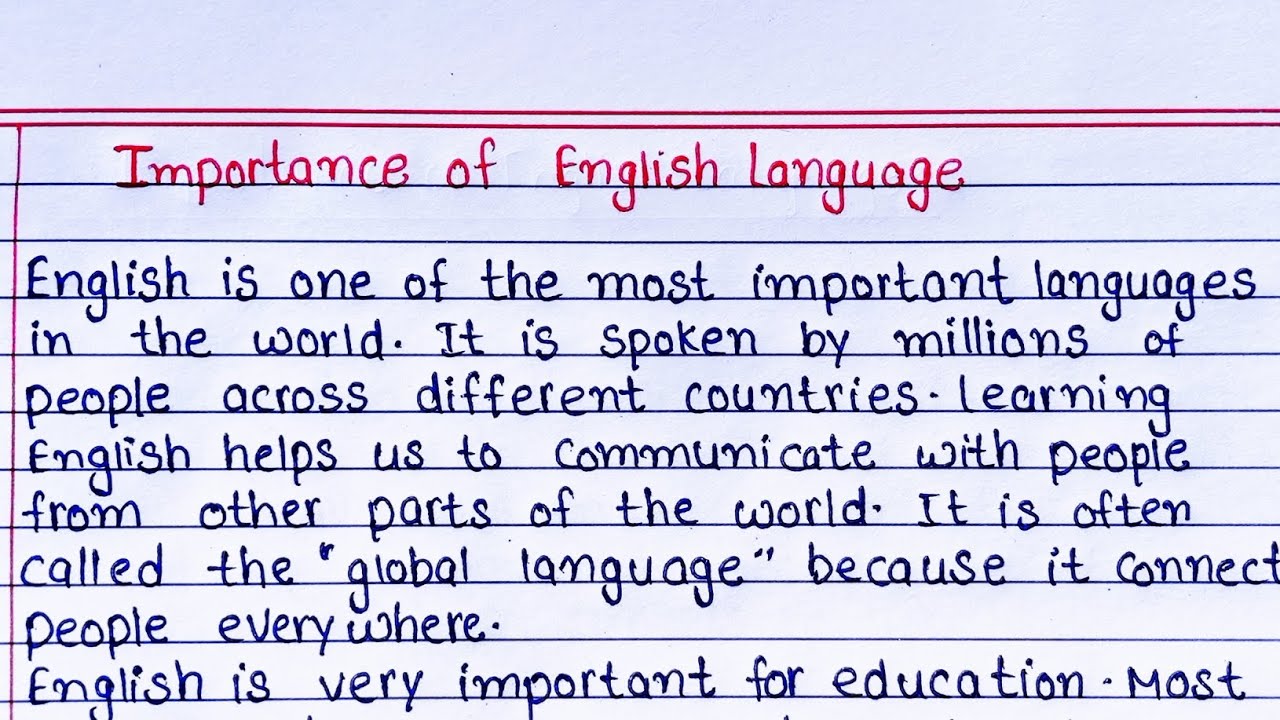 Importance of English Language
English is one of the most important languages
in the world. It is spoken by millions of
people across different countries. Learning
English helps us to communicate with people
from other parts of the world. It is often
called the "global language" because it connect
people everywhere.
English is very important for education. Most